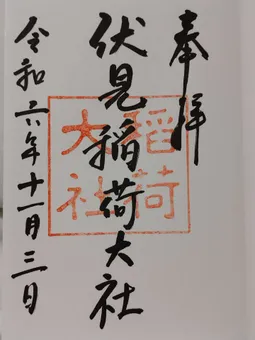 奉拝
伏見稲荷大社
稲荷
大社
令和六年十一月三日